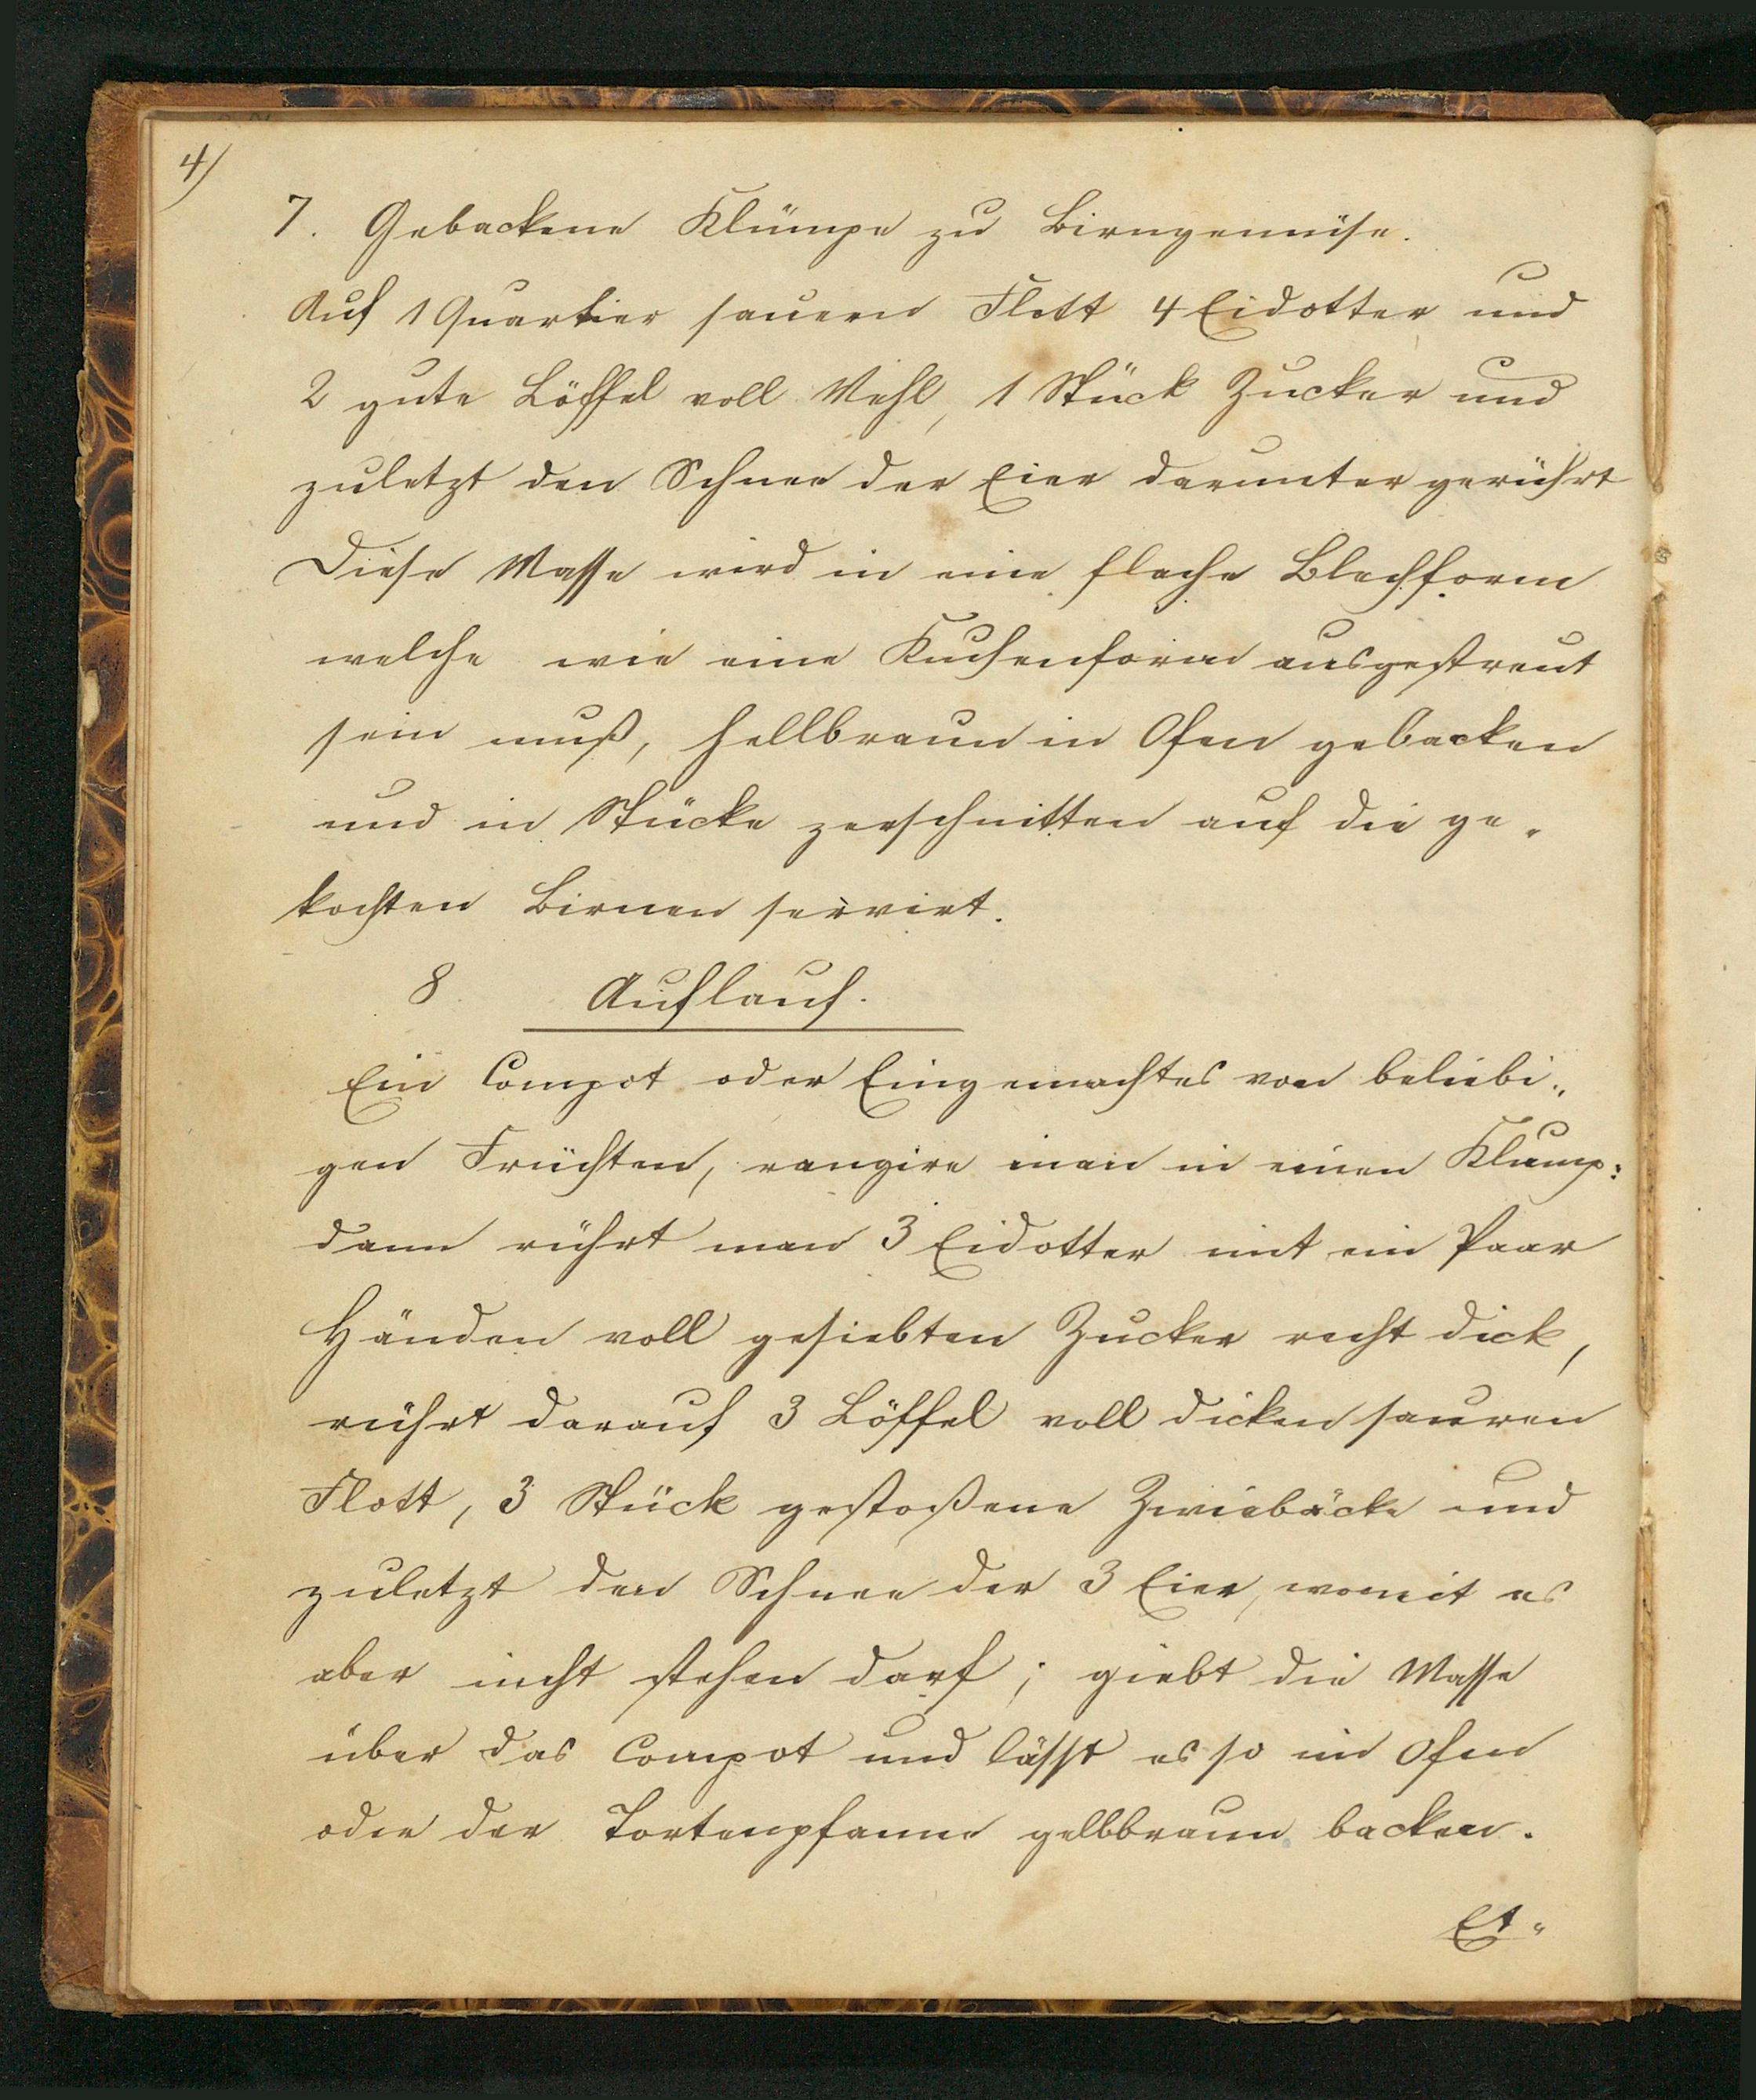 4)
7. Gebackene Klümpe zu Birngemüse.
Auf 1 Quartier sauern Flott 4 Eidotter und
2 gute Löffel voll Mehl, 1 Stück Zucker und
zuletzt den Schnee der Eier darunter gerührt
Diese Masse wird in eine flache Blechform
welche wie eine Kuchenform ausgestreut
sein muß, hellbraun in Ofen gebacken
und in Stücke zerschnitten auf die ge-
kochten Birnen servirt.
8. Auflauf.
Ein Compot oder Eingemachtes von beliebi-
gen Früchten, rangire man in einen Klump:
dann rührt man 3 Eidotter mit ein Paar
Händen voll gesiebten Zucker recht dick,
rührt darauf 3 Löffel voll dicken sauren
Flott, 3 Stück gestoßene Zwiebäcke und
zuletzt den Schnee der 3 Eier, womit es
aber nicht stehen darf; giebt die Masse
über das Compot und lässt es so im Ofen
oder der Tortenpfanne gelbbraun backen.
Et-